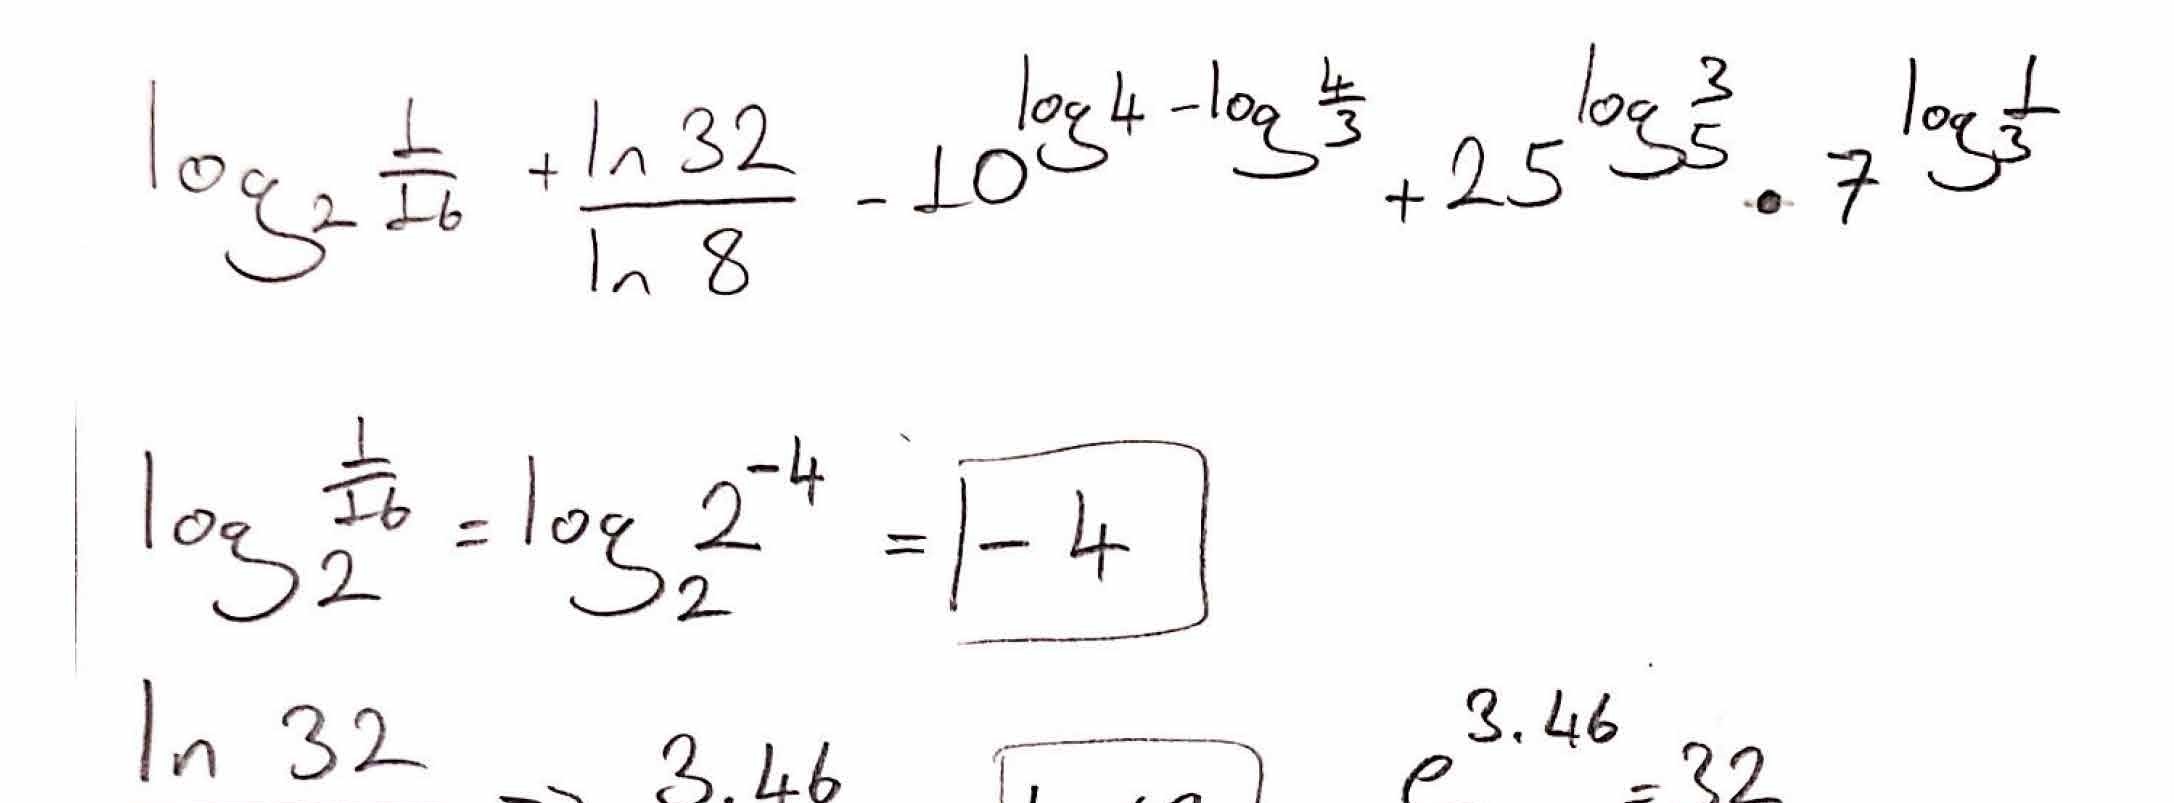 log₂ 1/16 + ln 32 / ln 8 - 10^(log 4 - log 4/3) + 25^(log₅ 3) · 7^(log 1/3)
log₂ 1/16 = log₂ 2^-4 = -4
ln 32 ⇒ 3.46 e^3.46 = 32